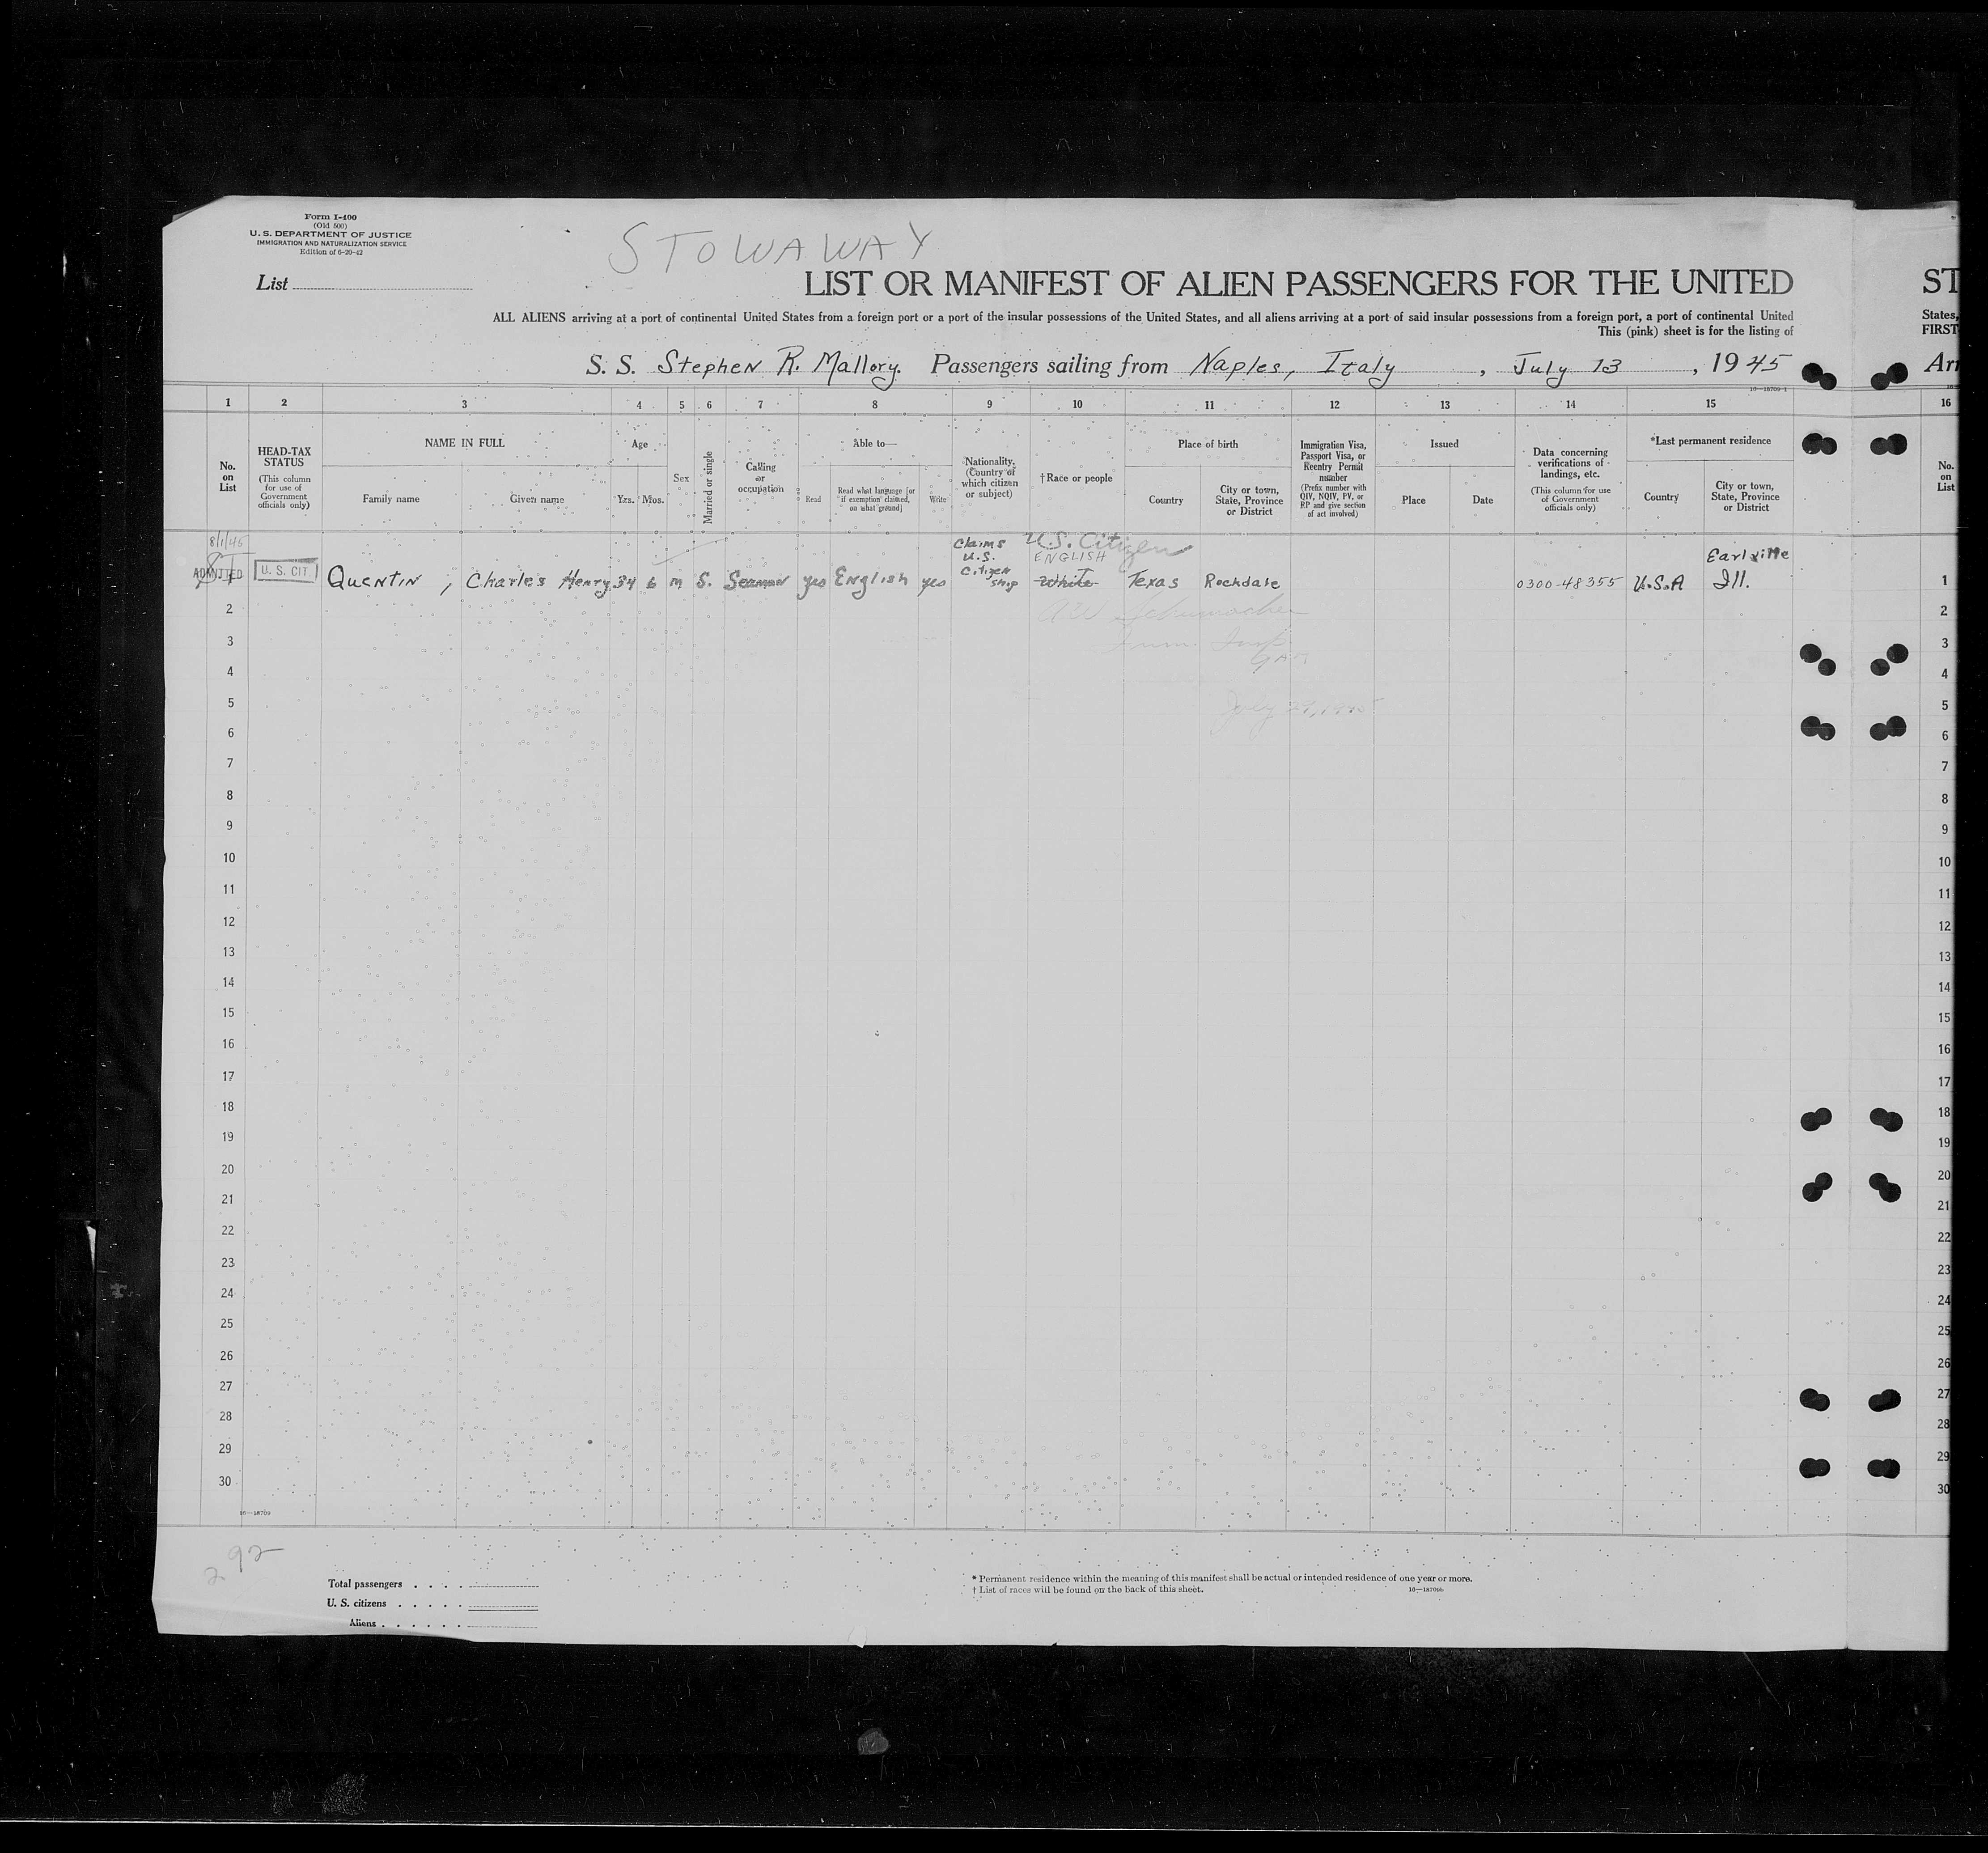 Form I-400
(Old 500)
U. S. DEPARTMENT OF JUSTICE
IMMIGRATION AND NATURALIZATION SERVICE
Edition of 6-20-42
STOWAWAY
List
LIST OR MANIFEST OF ALIEN PASSENGERS FOR THE UNITED
ST
ALL ALIENS arriving at a port of continental United States from a foreign port or a port of the insular possessions of the United States, and all aliens arriving at a port of said insular possessions from a foreign port, a port of continental United
States,
This (pink) sheet is for the listing of
FIRST
S. S. Stephen R. Mallory. Passengers sailing from Naples, Italy, July 13, 1945
Arr
16—18709-1
1 2 3 4 5 6 7 8 9 10 11 12 13 14 15 16
No. on List
HEAD-TAX STATUS
(This column for use of Government officials only)
NAME IN FULL
Family name
Given name
Age
Yrs. Mos.
Sex
Married or single
Calling or occupation
Able to—
Read
Read what language [or if exemption claimed, on what ground]
Write
Nationality. (Country of which citizen or subject)
†Race or people
Place of birth
Country
City or town, State, Province or District
Immigration Visa, Passport Visa, or Reentry Permit number
(Prefix number with QIV, NQIV, PV, or RP and give section of act involved)
Issued
Place
Date
Data concerning verifications of landings, etc.
(This column for use of Government officials only)
*Last permanent residence
Country
City or town, State, Province or District
No. on List
8/1/45
ADMITTED
U. S. CIT
Quentin, Charles Henry 34 6 m S. Seaman yes English yes
Claims U.S. Citizenship
U.S. Citizen
ENGLISH
White
Texas Rockdale
0300-48355 U.S.A
Earlville Ill.
1
Schumacher
2 2
3 3
4 4
July 29, 1945
5 5
6 6
7 7
8 8
9 9
10 10
11 11
12 12
13 13
14 14
15 15
16 16
17 17
18 18
19 19
20 20
21 21
22 22
23 23
24 24
25 25
26 26
27 27
28 28
29 29
30 30
16—18709
292
Total passengers
U. S. citizens
Aliens
* Permanent residence within the meaning of this manifest shall be actual or intended residence of one year or more.
† List of races will be found on the back of this sheet.